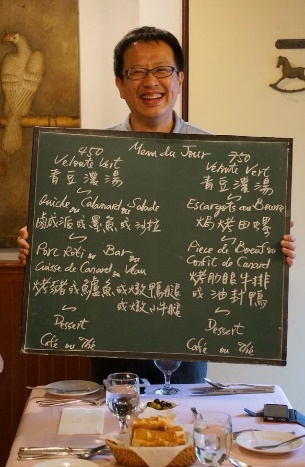 Menu du Jour
450
Veloute Vert
青豆濃湯
Quiche ou Calamard ou Salade
鹹派或墨魚或沙拉
Porc Roti ou Bar ou
Cuisse de Canard ou Veau
烤豬或鱸魚或燉鴨腿
或燉小牛腿
Dessert
Cafe ou Thé
750
Veloute Vert
青豆濃湯
Escargots au Beurre
焗烤田螺
Piece de Boeuf ou
Confit de Canard
烤肋眼牛排
或油封鴨
Dessert
Cafe ou Thé